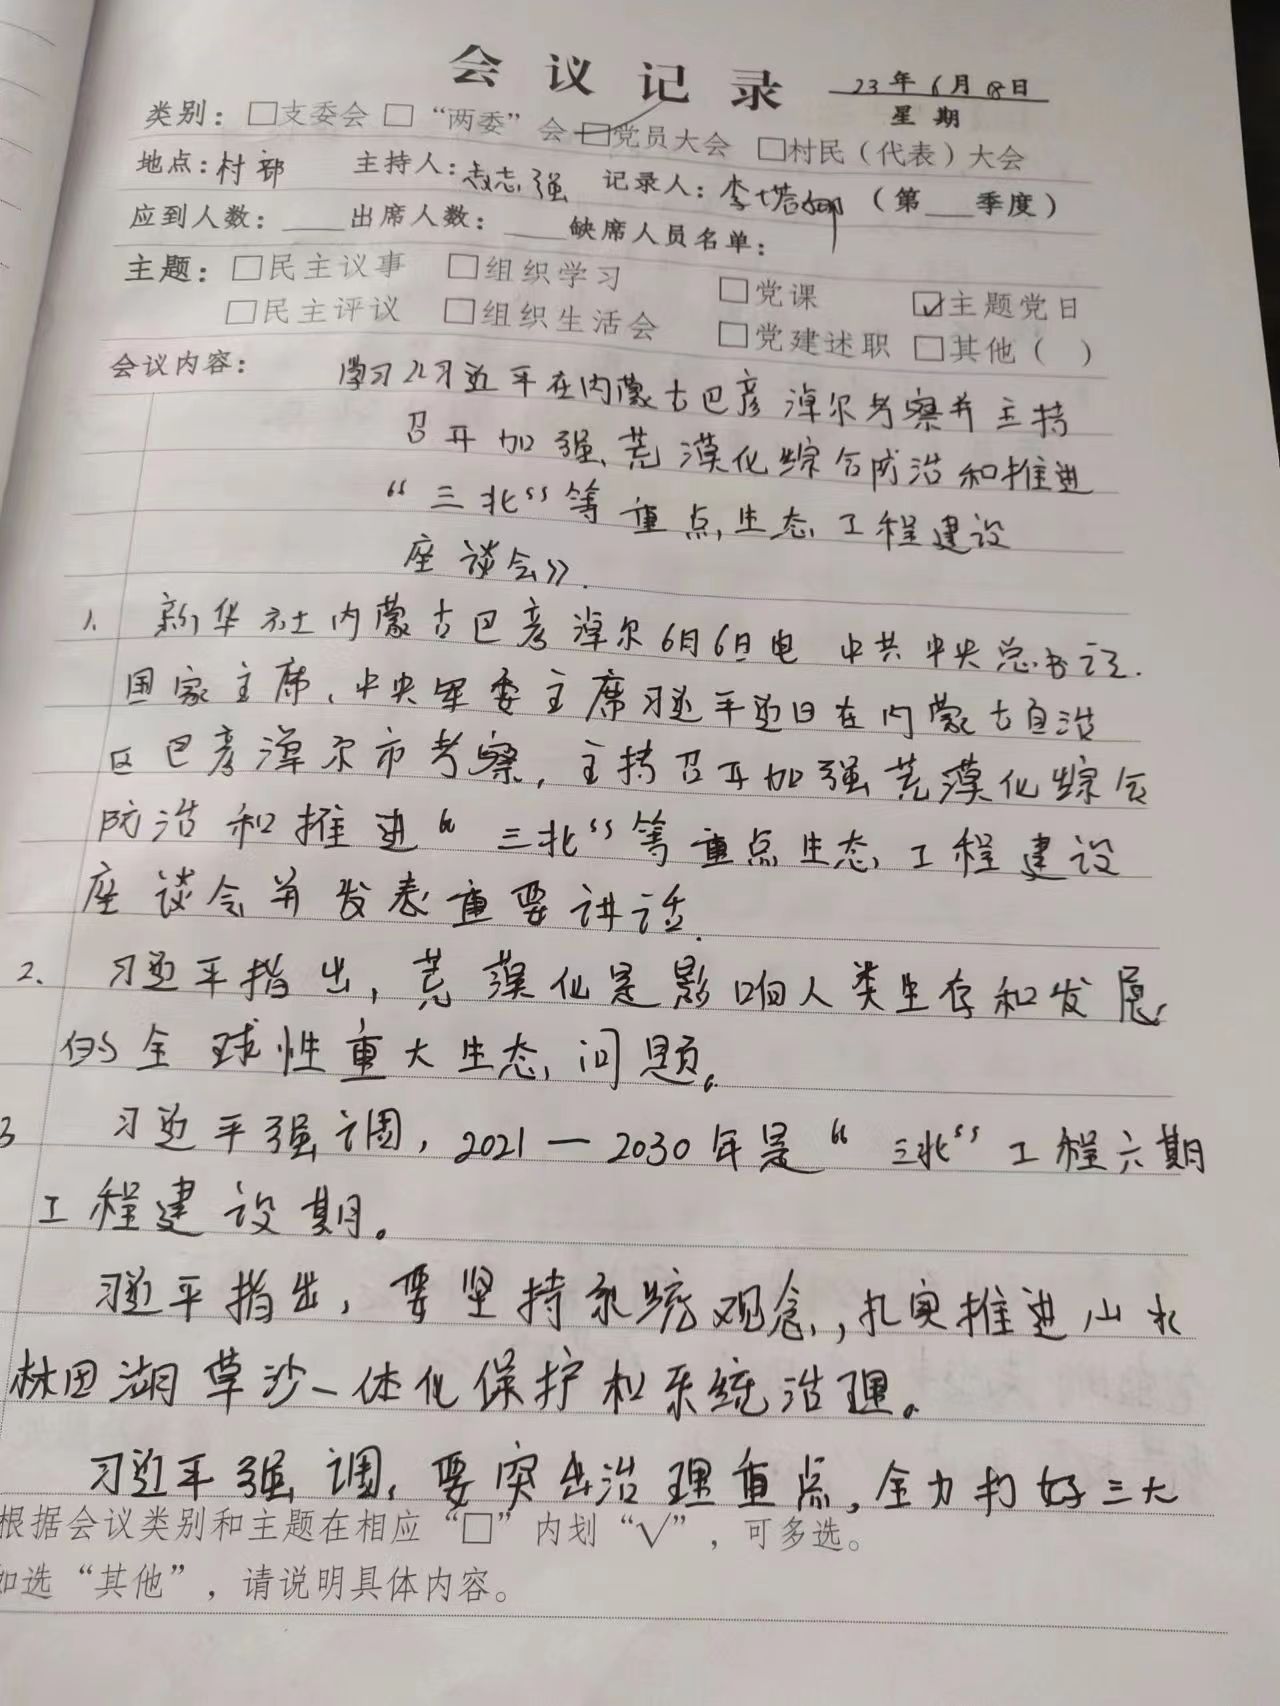 会议记录 23年6月18日
星期
类别：□支委会 □“两委”会 ☑党员大会 □村民（代表）大会
地点：村部 主持人：志强 记录人：李塔娜（第___季度）
应到人数：____出席人数：____缺席人员名单：
主题：□民主议事 □组织学习 □党课 ☑主题党日
□民主评议 □组织生活会 □党建述职 □其他（ ）
会议内容： 学习《习近平在内蒙古巴彦淖尔考察并主持
召开加强荒漠化综合防治和推进
“三北”等重点生态工程建设
座谈会》.
1. 新华社内蒙古巴彦淖尔6月6日电 中共中央总书记.
国家主席、中央军委主席习近平近日在内蒙古自治
区巴彦淖尔市考察，主持召开加强荒漠化综合
防治和推进“三北”等重点生态工程建设
座谈会并发表重要讲话.
2. 习近平指出，荒漠化是影响人类生存和发展
的全球性重大生态问题。
3 习近平强调，2021—2030年是“三北”工程六期
工程建设期。
习近平指出，要坚持系统观念，扎实推进山水
林田湖草沙一体化保护和系统治理。
习近平强调，要突出治理重点，全力打好三大
根据会议类别和主题在相应“□”内划“√”，可多选。
如选“其他”，请说明具体内容。